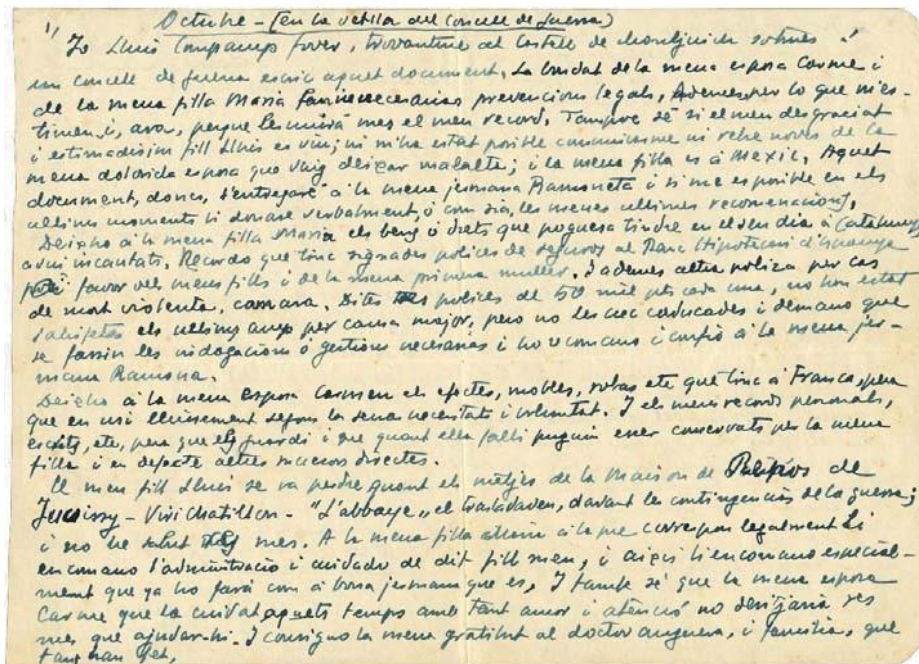 Octubre - (en la vetlla del Concell de guerra)
1/ "Jo Lluis Companys Jover, trovantme al Castell de Montjuich sotmes á
un Concell de guerra escric aquet document. La bondat de la meva esposa Carme i
de la meva filla Maria necesarias prevencions legals. Ademes per lo que m'es-
timen, i, ara, perque les mourá mes el meu record. Tampoc sé si el meu desgraciat
i estimadisim fill Lluis es viu; ni m'ha estat posible comunicarme ni rebre noves de la
meva dolorida esposa que vaig deixar malalta; i la meva filla es á Mexic. Aquet
document, doncs, s'entregará á la meva jermana Ramoneta i si me es posible en els
ultims moments li donaré verbalment, ó com sia, les meves ultimes recomenacions.
Deixo á la meva filla Maria els bens ó drets que pogues tindre en el seu dia á Catalunya
avui incautats. Recordo que tinc signades polices de seguros al Banc Hipotecari d'Espanya
favor dels meus fills i de la meva primera muller. I ademes altre poliza per cas
de mort violenta. Dites polices de 50 mil pts cada una, no han estat
satisfetas els ultims anys per causa major, pero no les crec caducades i demano que
se fassin les indagacions ó gestions necesarias i ho encomano i confio á la meva jer-
mana Ramona.
Deixo á la meva esposa Carmen els efectes, mobles, robas etc que tinc á França, pera
que en usi lliurement segons la seva necesitats i voluntat. I els meus records personals,
escrits, etc, pera que els guardi i que quant ella falti puguin esser conservats per la meva
filla i en defecte altres sucesors directes.
El meu fill Lluis se va perdre quant els metjes de la Maison de de
Juvissy - Viri Chatillon - "L'abbaye" el trasladaven, davant les contingencias de la guerra;
i no he sabut res mes. A la meva filla á la que correspon legalment li
encomano l'administració i cuidado de dit fill meu, i aixis li encomano especial-
ment que ya ho fará com á bona jermana que es. I també sé que la meva esposa
Carme que la cuidat aquets temps amb tant amor i atenció no desitjaria res
mes que ajudar-hi. I consigno la meva gratitut al doctor anguera, i familia, que
tant han fet.